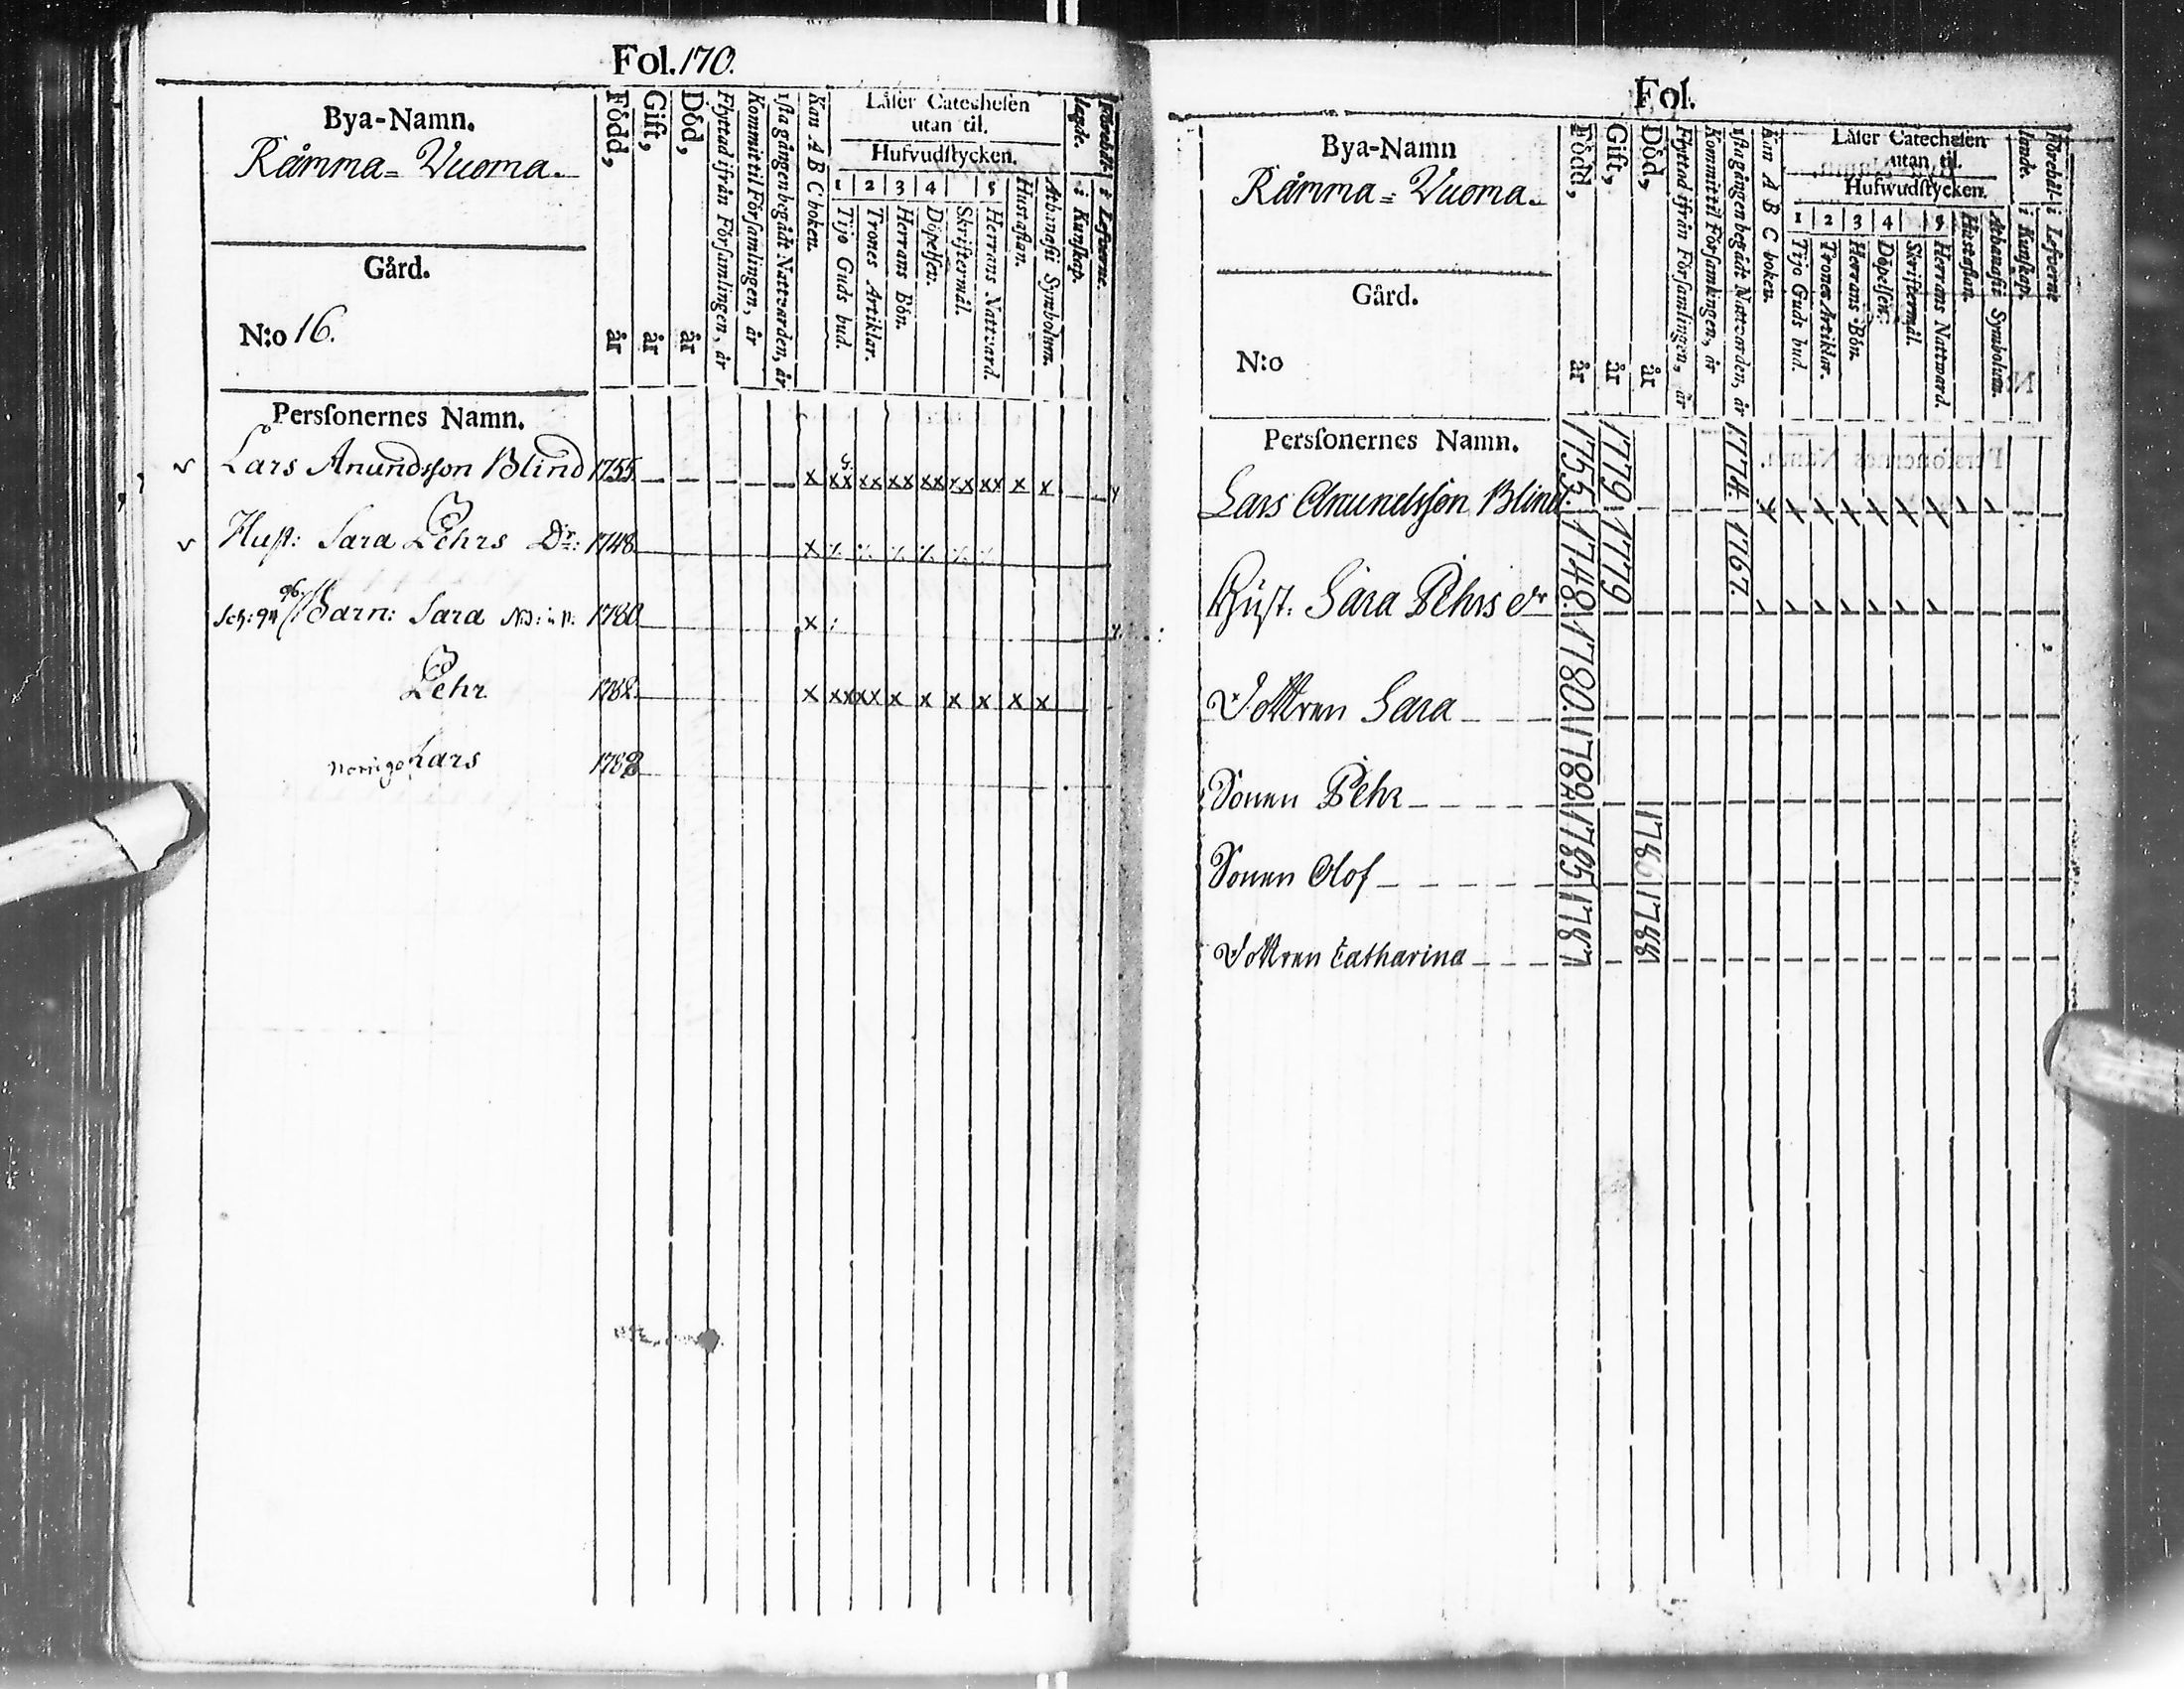 Fol. 170.
Bya-Namn.
Råmma = Vuoma.
Gård.
N:o 16.
Född, år
Gift, år
Död, år
Flyttad ifrån Församlingen, år
Kommit til Församlingen, år
1sta gången begådt Nattvarden, år
Kan A B C boken.
Läser Catechesen
utan til.
Hufvudstycken.
1 2 3 4 5
Tijo Guds bud.
Trones Artiklar.
Herrans Bön.
Döpelsen.
Skriftermål.
Herrans Nattvard.
Hustaflan.
Athanasii Symbolum.
i Kunskap.
i Lefverne.
Personernes Namn.
Lars Anundsson Blind 1755. x xx xx xx xx xx xx x x
Hust: Sara Pehrs Dr: 1748 x
Barn: Sara 1780 x
Pehr 1782 x xx xx x x x x x x
Lars 1788
Fol.
Bya-Namn
Råmma = Vuoma.
Gård.
N:o
Född, år
Gift, år
Död, år
Flyttad ifrån Församlingen, år
Kommit til Församlingen, år
1sta gången begådt Nattvarden, år
Kan A B C boken.
Läser Catechesen
utan til.
Hufwudstycken.
1 2 3 4 5
Tijo Guds bud.
Trones Artiklar.
Herrans Bön.
Döpelsen.
Skriftermål.
Herrans Nattward.
Hustaflan.
Athanasii Symbolum.
i Kunskap.
i Lefverne
Personernes Namn.
Lars Anundsson Blind 1755. 1779 1774.
Hust. Sara Pehrs dr 1748. 1779 1767.
Dottren Sara 1780.
Sonen Pehr 1782
Sonen Olof 1785 1786
Dottren Catharina 1787 1788